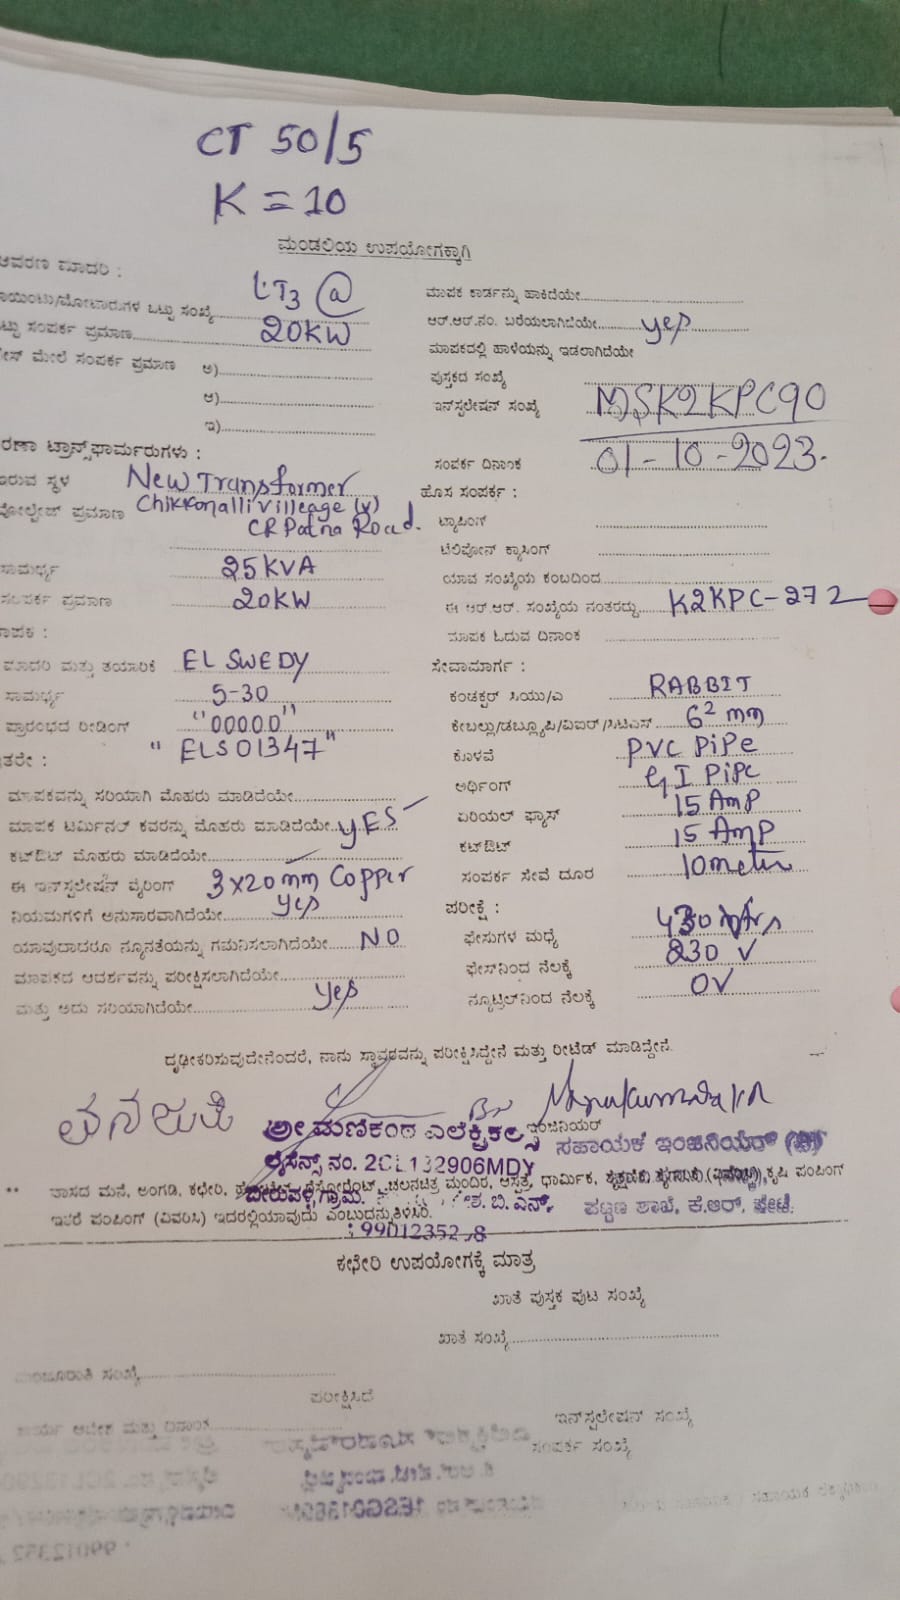 CT 50/5
K = 10
ಮಂಡಲಿಯ ಉಪಯೋಗಕ್ಕಾಗಿ
ಆವರಣ ಮಾದರಿ :
LT3 @
ಮಾಪಕ ಕಾರ್ಡನ್ನು ಹಾಕಿದೆಯೇ
ಒಟ್ಟು ಸಂಖ್ಯೆ
20KW
ಆರ್.ಆರ್.ನಂ. ಬರೆಯಲಾಗಿದೆಯೇ yes
ಸಂಪರ್ಕ ಪ್ರಮಾಣ
ಮಾಪಕದಲ್ಲಿ ಹಾಳೆಯನ್ನು ಇಡಲಾಗಿದೆಯೇ
ಮೇಲೆ ಸಂಪರ್ಕ ಪ್ರಮಾಣ ಅ)
ಪುಸ್ತಕದ ಸಂಖ್ಯೆ
ಆ)
ಇನ್‌ಸ್ಟಲೇಷನ್ ಸಂಖ್ಯೆ MSK2KPC90
ಇ)
ಟ್ರಾನ್ಸ್‌ಫಾರ್ಮರುಗಳು :
ಸಂಪರ್ಕ ದಿನಾಂಕ 01-10-2023.
ಇರುವ ಸ್ಥಳ New Transformer
ಹೊಸ ಸಂಪರ್ಕ :
ವೋಲ್ಟೇಜ್ ಪ್ರಮಾಣ Chikkonalli villeage (v)
CR Patna Road.
ಟ್ಯಾಪಿಂಗ್
ಟೆಲಿಫೋನ್ ಕ್ರಾಸಿಂಗ್
ಸಾಮರ್ಥ್ಯ 25KVA
ಯಾವ ಸಂಖ್ಯೆಯ ಕಂಬದಿಂದ
ಸಂಪರ್ಕ ಪ್ರಮಾಣ 20KW
ಈ ಆರ್.ಆರ್. ಸಂಖ್ಯೆಯ ನಂತರದ್ದು K2KPC-272
ಮಾಪಕ ಓದುವ ದಿನಾಂಕ
ಮಾದರಿ ಮತ್ತು ತಯಾರಿಕೆ EL SWEDY
ಸೇವಾಮಾರ್ಗ :
ಸಾಮರ್ಥ್ಯ 5-30
ಕಂಡಕ್ಟರ್ ಸಿಯು/ಎ RABBIT
ಪ್ರಾರಂಭದ ರೀಡಿಂಗ್ "00000"
ಕೇಬಲ್ಲು/ಡಬ್ಲ್ಯೂಪಿ/ವಿಐಆರ್/ಸಿಟಿಎಸ್ 6² mm
ಇತರೇ : "ELS01347"
ಕೊಳವೆ PVC PiPe
ಮಾಪಕವನ್ನು ಸರಿಯಾಗಿ ಮೊಹರು ಮಾಡಿದೆಯೇ
ಅರ್ಥಿಂಗ್ GI PiPe
ಮಾಪಕ ಟರ್ಮಿನಲ್ ಕವರನ್ನು ಮೊಹರು ಮಾಡಿದೆಯೇ YES
ಏರಿಯಲ್ ಫ್ಯೂಸ್ 15 Amp
ಕಟ್‌ಔಟ್ ಮೊಹರು ಮಾಡಿದೆಯೇ
ಕಟ್‌ಔಟ್ 15 Amp
ಈ ಇನ್‌ಸ್ಟಲೇಷನ್ ವೈರಿಂಗ್ 3x20mm Copper
ಸಂಪರ್ಕ ಸೇವೆ ದೂರ 10meter
ನಿಯಮಗಳಿಗೆ ಅನುಸಾರವಾಗಿದೆಯೇ yes
ಪರೀಕ್ಷೆ :
ಯಾವುದಾದರೂ ನ್ಯೂನತೆಯನ್ನು ಗಮನಿಸಲಾಗಿದೆಯೇ NO
ಫೇಸುಗಳ ಮಧ್ಯೆ 430
ಮಾಪಕದ ಆದರ್ಶವನ್ನು ಪರೀಕ್ಷಿಸಲಾಗಿದೆಯೇ
ಫೇಸ್‌ನಿಂದ ನೆಲಕ್ಕೆ 230 V
ಮತ್ತು ಅದು ಸರಿಯಾಗಿದೆಯೇ yes
ನ್ಯೂಟ್ರಲ್‌ನಿಂದ ನೆಲಕ್ಕೆ 0V
ದೃಢೀಕರಿಸುವುದೇನೆಂದರೆ, ನಾನು ಸ್ಥಾವರವನ್ನು ಪರೀಕ್ಷಿಸಿದ್ದೇನೆ ಮತ್ತು ರೀಟೆಡ್ ಮಾಡಿದ್ದೇನೆ.
ಶ್ರೀ ಮಣಿಕಂಠ ಎಲೆಕ್ಟ್ರಿಕಲ್ಸ್
ಇಂಜಿನಿಯರ್
ಸಹಾಯಕ ಇಂಜಿನಿಯರ್ (ವಿ)
ಲೈಸೆನ್ಸ್ ನಂ. 2CL132906MDY
** ವಾಸದ ಮನೆ, ಅಂಗಡಿ, ಕಛೇರಿ, ರೆಸ್ಟೋರೆಂಟ್, ಚಲನಚಿತ್ರ ಮಂದಿರ, ಆಸ್ಪತ್ರೆ, ಧಾರ್ಮಿಕ, ಕೃಷಿ ಪಂಪಿಂಗ್
ಇತರೆ ಪಂಪಿಂಗ್ (ವಿವರಿಸಿ) ಇದರಲ್ಲಿಯಾವುದು ಎಂಬುದನ್ನು ತಿಳಿಸಿರಿ.
ಪಟ್ಟಣ ಶಾಖೆ, ಕೆ.ಆರ್. ಪೇಟೆ.
ಕಛೇರಿ ಉಪಯೋಗಕ್ಕೆ ಮಾತ್ರ
ಖಾತೆ ಪುಸ್ತಕ ಪುಟ ಸಂಖ್ಯೆ
ಖಾತೆ ಸಂಖ್ಯೆ
ಮಂಜೂರಾತಿ ಸಂಖ್ಯೆ
ಪರೀಕ್ಷಿಸಿದೆ
ಇನ್‌ಸ್ಟಲೇಷನ್ ಸಂಖ್ಯೆ
ಕಾರ್ಯ ಆದೇಶ ಮತ್ತು ದಿನಾಂಕ
ಸಂಪರ್ಕ ಸಂಖ್ಯೆ